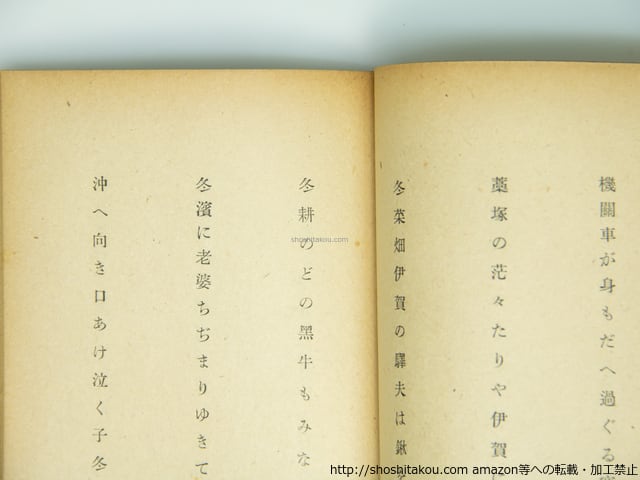 機關車が身もだへ過ぐる
藁塚の茫々たりや伊賀
冬菜畑伊賀の驛夫は鍬
冬耕のどの黑牛もみな
冬濱に老婆ちぢまりゆきて
沖へ向き口あけ泣く子冬
shoshitakou.com
http://shoshitakou.com amazon等への転載・加工禁止